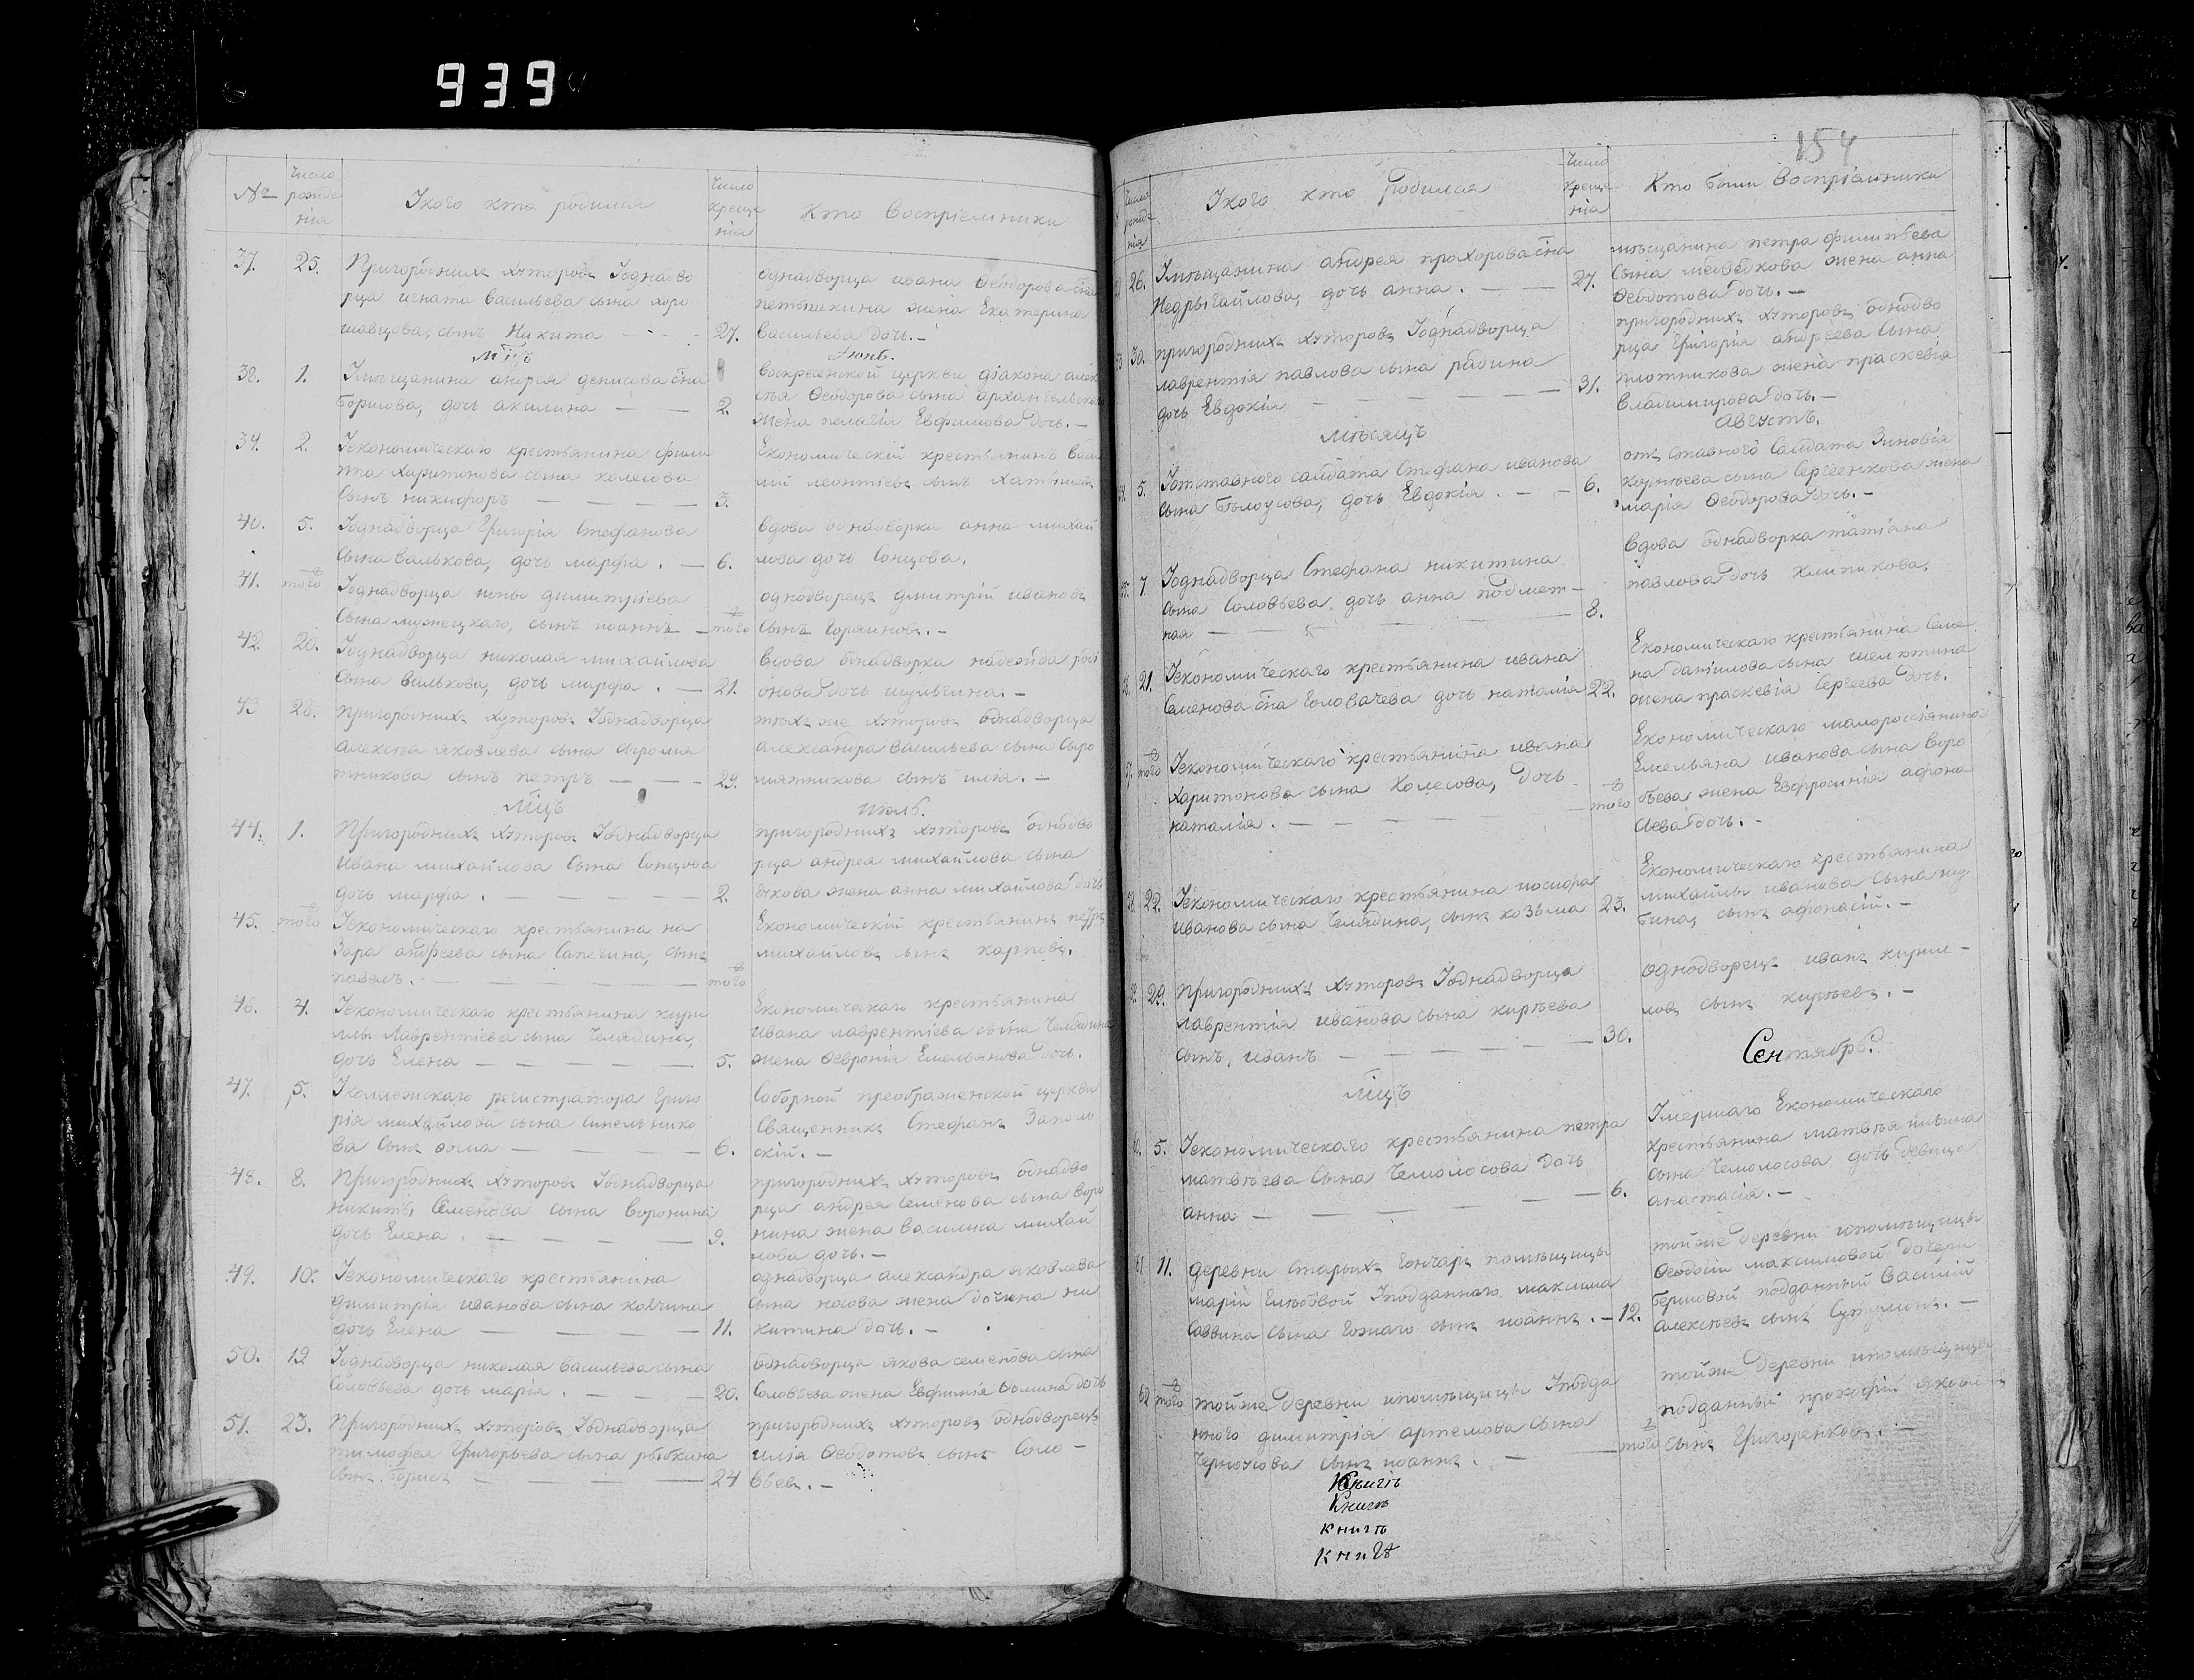 939
№
Число рождения
У кого кто родился
Число крещения
Кто воспріемники
37. 25. Пригородныхъ хуторовъ У однадво
рца игната васильева сына хоро
шавцова, сынъ Никита — 27.
однадворца ивана Ѳеодорова сна
петышкина жена Екатерина
Васильева дочь. —
Мцъ Іюнь.
38. 1. У мѣщанина андрея денисова сна
борисова, дочь акилина — 2.
воскресенской церкви діакона алек
сѣя Ѳеодорова сына архангельскаго
жена пелагія Евфимова дочь. —
39. 2. У економическаго крестьянина фили
ппа харитонова сына колесова
Сынъ никифоръ — 3.
Економическій крестьянинъ васи
лій леонтіевъ сынъ
40. 5. У однадворца Григорія Стефанова
Сына валькова, дочь марфа. — 6.
вдова однадворка анна михай
лова дочь Сонцова.
41. того У однадворца димитріева
Сына мужецкаго, сынъ иоаннъ — того
однодворецъ дмитрій ивановъ
Сынъ Горяиновъ. —
42. 20. У однадворца николая михайлова
Сына валькова, дочь марфа. — 21.
вдова однадворка надежда роді
онова дочь шульгина. —
43 28. пригородныхъ хуторовъ У однадворца
алексѣя яковлева сына сыромя
тникова сынъ петръ — 29.
тѣхъ же хуторовъ однадворца
александра васильева сына сыро
мятникова сынъ илія. —
Мцъ июль.
44. 1. Пригородныхъ хуторовъ У однадворца
Ивана михайлова Сына Сонцова
дочь марфа. — 2.
пригородныхъ хуторовъ однадво
рца андрея михайлова сына
жена анна михайлова дочь
45. того У економическаго крестьянина на
зара андреева сына Сапегина, сынъ
павелъ. — того
Економическій крестьянинъ петръ
михайловъ сынъ карповъ.
46. 4. У економическаго крестьянина кири
лы лаврентіева сына Челядина,
дочь Елена — 5.
Економическаго крестьянина
ивана лаврентіева сына Челядина
жена Ѳевронія Емельянова дочь.
47. 5. У коллежскаго регистратора Григо
рія михайлова сына Синельнико
ва Сынъ Ѳома — 6.
Соборной преображенской церкви
Священникъ Стефанъ Заполь
скій. —
48. 8. Пригородныхъ хуторовъ У однадворца
никиты Семенова сына воронина
дочь Елена. — 9.
пригородныхъ хуторовъ однадво
рца андрея Семенова сына воро
нина жена василиса михай
лова дочь. —
49. 10. У економическаго крестьянина
димитрія иванова сына
дочь Елена — 11.
однадворца александра яковлева
сына носова жена ни
китина дочь. —
50. 19 У однадворца николая васильева сына
Соловьева дочь марія. — 20.
однадворца якова семенова сына
Соловьева жена Евфимія Ѳомина дочь
51. 23. Пригородныхъ хуторовъ У однадворца
тимофея Григорьева сына рыбкина
сынъ борисъ — 24
пригородныхъ хуторовъ однодворецъ
илія Ѳеодотовъ сынъ Соло-
вьевъ. —
154
Число рожденія
У кого кто родился
Число крещенія
Кто были Воспріемники
26. У мѣщанина андрея прохорова сна
Недрыгайлова, дочь анна. — 27.
мѣщанина петра филипьева
сына медвѣдкова жена анна
Ѳеодотова дочь. —
30. пригородныхъ хуторовъ У однадворца
лаврентія павлова сына рядина
дочь Евдокія — 31.
пригородныхъ хуторовъ однодво
рца Григорія андреева сына
плотникова жена праскевія
Владимирова дочь. —
Мѣсяцъ Августъ.
5. У отставного салдата Стефана иванова
сына бѣлоусова, дочь Евдокія. — 6.
отъ ставного Салдата Зиновія
корнѣева сына Сергеенкова жена
марія Ѳеодорова дочь. —
7. У однадворца Стефана никитина
сына Соловьева дочь анна подмет-
ная — 8.
вдова однадворка татіана
павлова дочь
21. У економическаго крестьянина ивана
Семенова сна Головачева дочь наталія 22.
Економическаго крестьянина Семе
на данілова сына
жена праскевія Сергеева дочь.
того У економическаго крестьянина ивана
Харитонова сына Колесова, дочь
наталія. — того
Економическаго малороссіянина
Емельяна иванова сына воро
бьева жена Евфросинія афона
сіева дочь. —
22. У економическаго крестьянина иосифа
иванова сына Челядина, сынъ козьма 23.
Економическаго крестьянина
михайлы иванова сына
бина, сынъ афонасій. —
29. Пригородныхъ хуторовъ У однадворца
лаврентія иванова сына кирѣева
сынъ, иванъ — 30.
однодворецъ иванъ кирил-
ловъ сынъ кирѣевъ. —
Мцъ Сентябрь.
5. У економическаго крестьянина петра
матвѣева сына Чемолосова дочь
анна — 6.
Умершаго Економическаго
крестьянина матвѣя ильина
сына Чемолосова дочь девица
анастасія. —
61 11. деревни Старыхъ Гончаръ помѣщицы
маріи Глѣбовой У подданнаго максима
Саввина сына сынъ иоаннъ. — 12.
той же деревни и помѣщицы
Ѳеодосіи максимовой дочери
подданный василій
алексѣевъ сынъ
62 того той же деревни и помѣщицы У подда
нного димитрія артемова сына
Черноусова сынъ иоаннъ. — того
той же деревни и помѣщицы
подданный прокофій
сынъ Григоренковъ. —
Книгѣ
Книгѣ
книгѣ
книгѣ